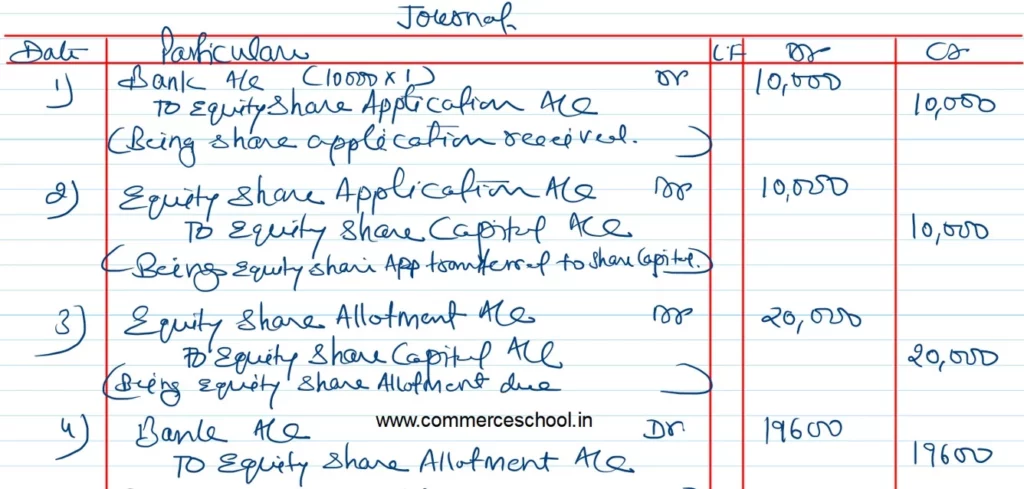 Journal
Date Particulars LF Dr Cr
1) Bank A/c (10000 x 1) Dr 10,000
To Equity Share Application A/c 10,000
(Being share application received.)
2) Equity Share Application A/c Dr 10,000
To Equity Share Capital A/c 10,000
(Being Equity share App transferred to Share Capital.)
3) Equity Share Allotment A/c Dr 20,000
To Equity Share Capital A/c 20,000
(Being Equity Share Allotment due)
www.commerceschool.in
4) Bank A/c Dr. 19600
To Equity Share Allotment A/c 19600